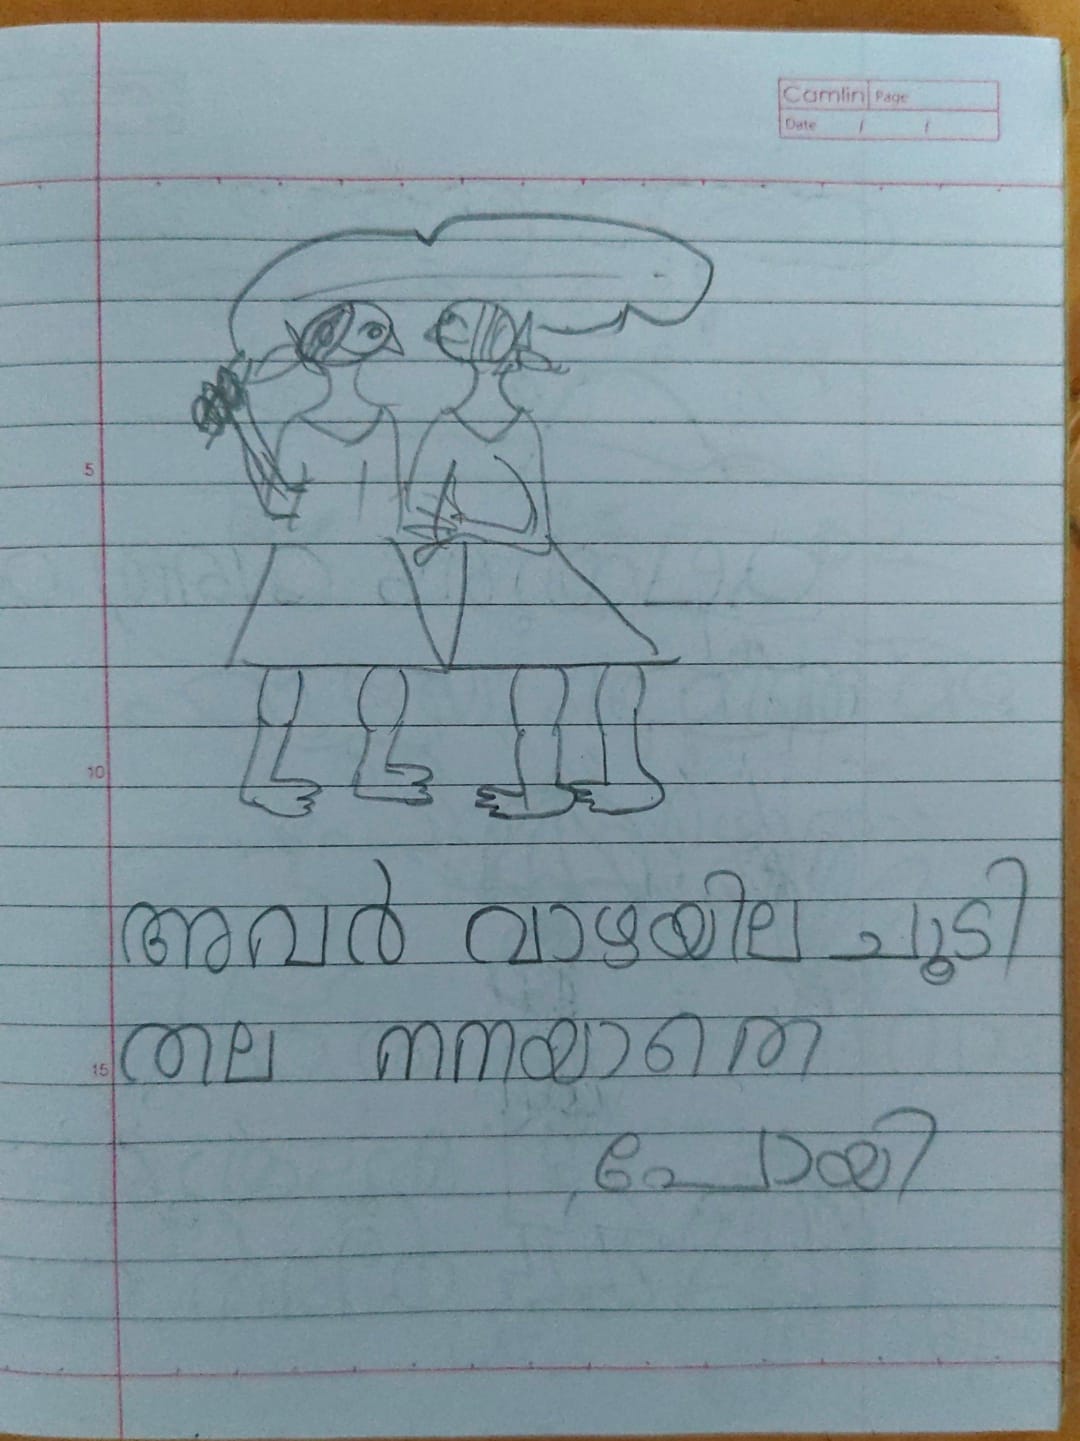 Camlin Page
Date / /
5
10
അവർ വാഴയില ചൂടി
15
തല നനയാതെ
പോയി